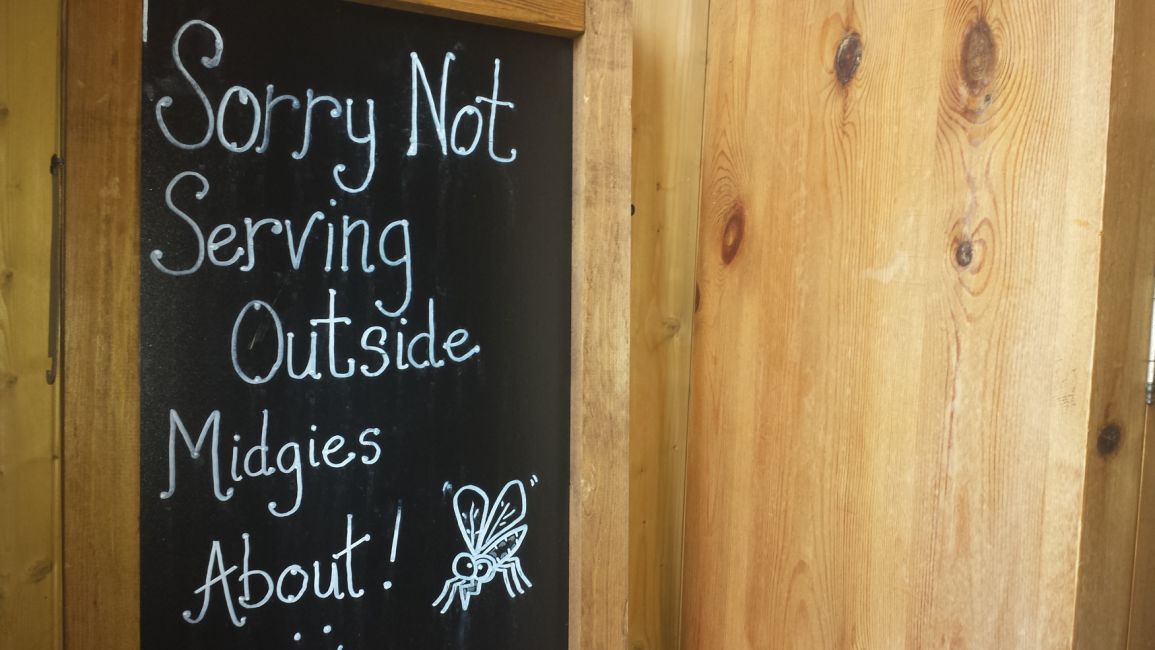 Sorry Not
Serving
Outside
Midgies
About!